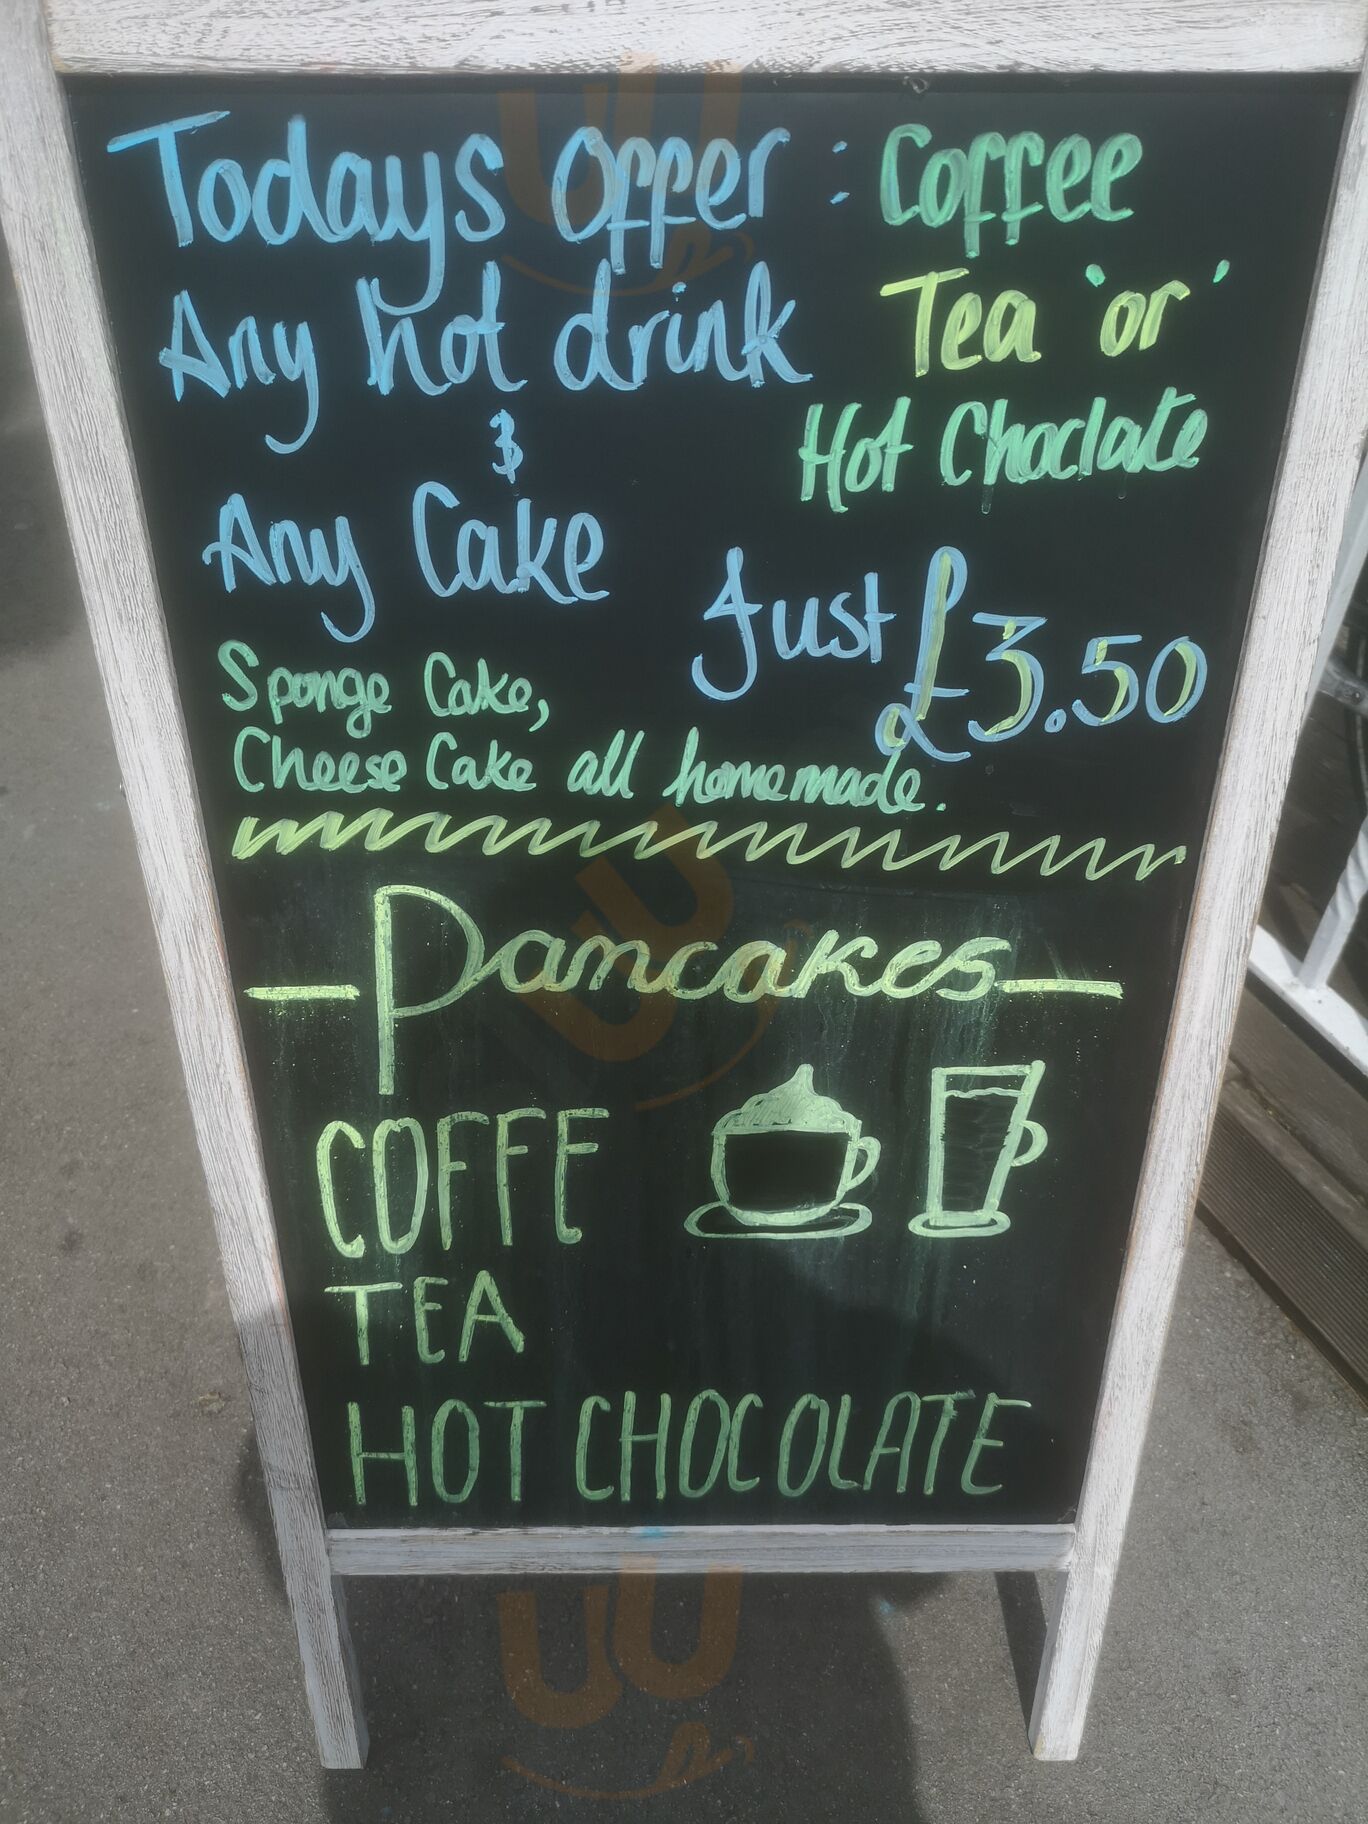 Todays Offer : Coffee
Any hot drink Tea 'or'
& Hot Choclate
Any Cake Just £3.50
Sponge Cake,
Cheese Cake all homemade.
Pancakes
COFFE
TEA
HOT CHOCOLATE